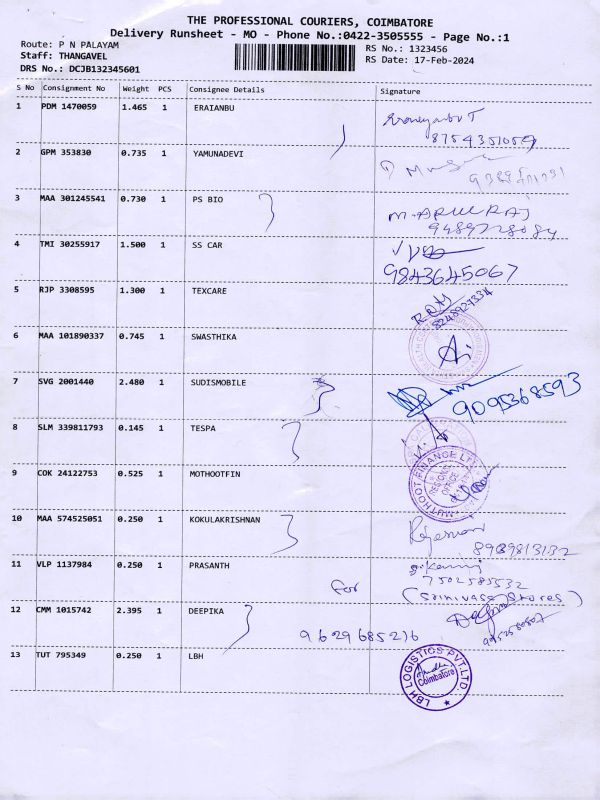 THE PROFESSIONAL COURIERS, COIMBATORE
Delivery Runsheet - MO - Phone No.:0422-3505555 - Page No.:1
Route: P N PALAYAM
RS No.: 1323456
Staff: THANGAVEL
RS Date: 17-Feb-2024
DRS No.: DCJB132345601
S No Consignment No Weight PCS Consignee Details Signature
1 PDM 1470059 1.465 1 ERAIANBU
8754351059
2 GPM 353830 0.735 1 YAMUNADEVI
3 MAA 301245541 0.730 1 PS BIO M.ARULRAJ
9489728084
4 TMI 30255917 1.500 1 SS CAR
9843645067
5 RJP 3308595 1.300 1 TEXCARE
8248927334
6 MAA 101890337 0.745 1 SWASTHIKA
7 SVG 2001440 2.480 1 SUDISMOBILE
9095368593
8 SLM 339811793 0.145 1 TESPA
9 COK 24122753 0.525 1 MOTHOOTFIN
MUTHOOT FINANCE LTD
REGIONAL OFFICE
10 MAA 574525051 0.250 1 KOKULAKRISHNAN
8989813132
11 VLP 1137984 0.250 1 PRASANTH
7502585532
for (Srinivasa Stores)
12 CMM 1015742 2.395 1 DEEPIKA Deepika
9629685216
13 TUT 795349 0.250 1 LBH
LBH LOGISTICS PVT.LTD.
Coimbatore